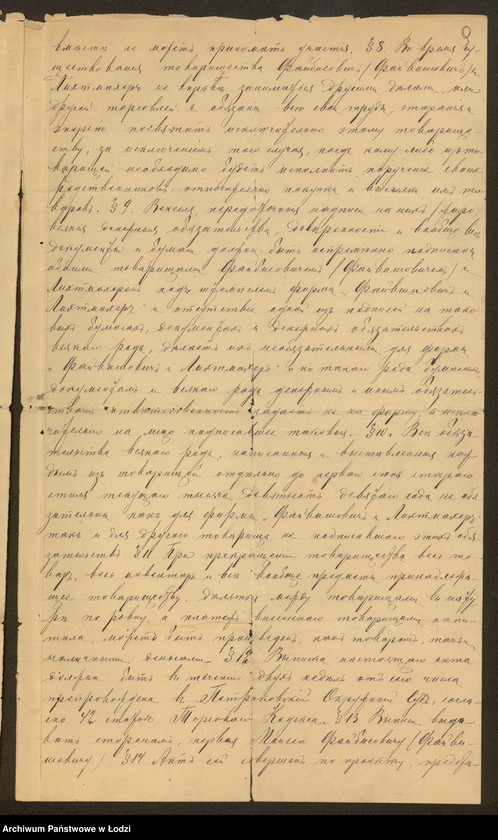 вместы не можетъ принимать участiя. § 8 Во время су-
ществованiя товарищества Файвусовичъ /Файвишовичъ/ и
Лихтмахеръ не вправѣ заниматься другими дѣлами, или
другой торговлей и обязаны всѣ свои труды, старанiя и
энергiю посвятить исключительно этому товарище-
ству, за исключенiемъ того случая, когда кому либо изъ то-
варищей необходимо будетъ исполнить порученiе своихъ
родственниковъ относительно покупки и высылки имъ то-
варовъ. § 9. Векселя, передаточныя надписи на нихъ /жиро/
всякiя денежныя обязательства, довѣренности и вообще всѣ
документы и бумаги должны быть непремѣнно подписаны
обоими товарищами Файвусовичемъ /Файвишовичемъ/ и
Лихтмахеромъ подъ штемпелемъ фирмы „Файвишовичъ и
Лихтмахеръ" и отсутствiе одной изъ подписей на тако-
выхъ бумагахъ, документахъ и денежныхъ обязательствахъ
всякаго рода, дѣлаетъ ихъ необязательными для фирмы
„Файвишовичъ и Лихтмахеръ" и по такого рода бумагамъ,
документамъ и всякаго рода денежнымъ и инымъ обязатель-
ствамъ ответственность падаетъ не на фирму а исклю-
чительно на лицо подписавшее таковыя. § 10. Всѣ обяза-
тельства всякаго рода, написанныя и выставленныя каж-
дымъ изъ товарищей отдѣльно до перваго iюня стараго
стиля текущаго тысяча девятьсотъ девятаго года не обя-
зательны какъ для фирмы „Файвишовичъ и Лихтмахеръ"
такъ и для другого товарища не подписавшаго этихъ обя-
зательствъ § 11 При прекращенiи товарищества весь то-
варъ, весь инвентарь и всѣ вообще предметы принадлежа-
щiе товариществу, дѣлятся между товарищами въ нату-
рѣ по ровну, а платежъ внесеннаго товарищами капи-
тала, можетъ быть произведенъ какъ товаромъ, такъ и
наличными деньгами § 12 Выпись настоящаго акта
должна быть въ теченiи двухъ недѣль отъ сего числа
препровождена в Петроковскiй Окружный Судъ, соглас-
но 42 статьи Торговаго Кодекса. § 13 Выписи выда-
вать сторонамъ, первая Моисею Файвусовичу (Файви-
шовичу) § 14 Актъ сей совершенъ по проекту, предъя-
Archiwum Państwowe w Łodzi